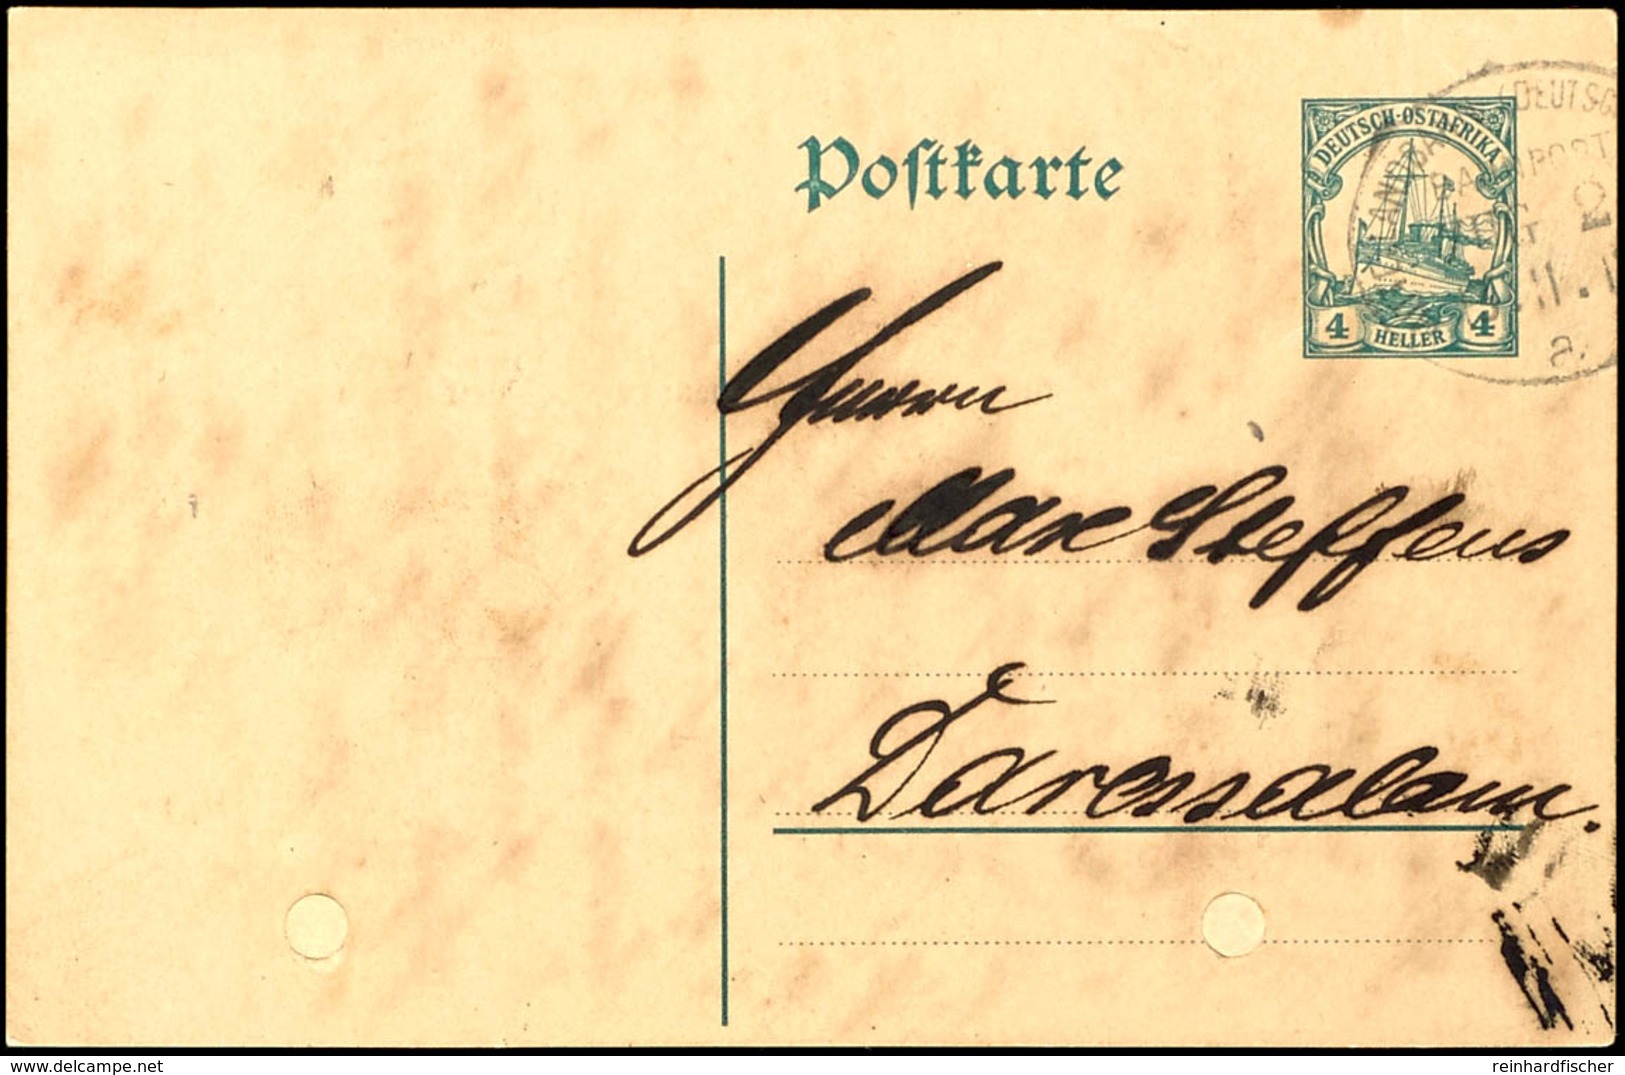 Postkarte
DEUTSCH-OSTAFRIKA
4 HELLER 4
(DEUTSC
BAHNPOST
ZUG 2
a.
Herrn
Max Steffens
Daressalam.
delcampe.net
reinhardfischer